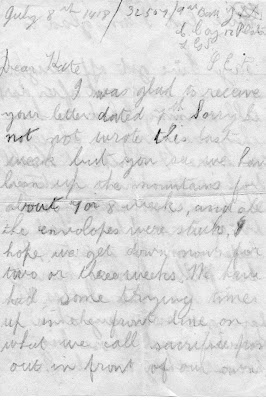 July 8th 1918 / 32507 / 
Dear Kate,
I was glad to receive
your letter dated 7th Sorry I
not not wrote this last
week but you see we have
been up the mountains for
about 7 or 8 weeks, and all
the envelopes were stuck, I
hope we get down now for
two or three weeks. We have
had some trying times
up in the front line on
what we call sacrifice pos
out in front of our own